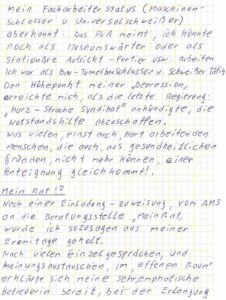 mein Facharbeiterstatus (Maschinen-
schlosser u Universalschweißer)
aberkannt. Das PVA meint, ich könnte
noch als Museumswärter oder als
Stationäre Aufsicht - Portier usw. arbeiten.
Ich war als Bau-Tunnelbauschlosser u Schweißer tätig
Den Höhepunkt meiner „Depression"
erreichte mich, als die letzte Regierung:
„Kurz - Strache Syndikat" ankündigte, die
Notstandshilfe abzuschaffen.
Was vielen, einst auch, hart arbeitenden
Menschen, die auch, aus gesundheitlichen
Gründen, nicht mehr können, einer
Enteignung gleichkommt!.
Mein Rat!?
Nach einer Einladung - zuweisung, vom AMS
an die Beratungsstelle „MeinRat,
wurde ich sozusagen aus meiner
Eremitage geholt.
Nach vielen Einzelgesprächen, und
Meinungsaustauschen, im „offenen Raum"
erklärte sich meine sehr emphatische
Betreuerin bereit, bei der Erlangung